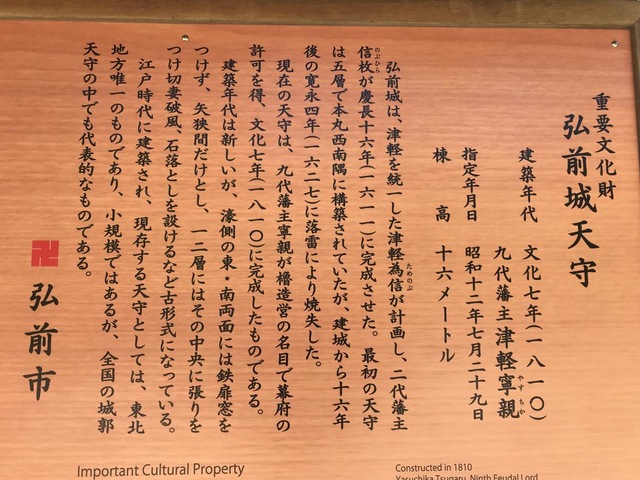 重要文化財
弘前城天守
建築年代　文化七年(一八一〇)
九代藩主津軽寧親
やすちか
指定年月日　昭和十二年七月二十九日
棟高　十六メートル
弘前城は、津軽を統一した津軽為信が計画し、二代藩主
ためのぶ
信枚が慶長十六年(一六一一)に完成させた。最初の天守
のぶひら
は五層で本丸西南隅に構築されていたが、建城から十六年
後の寛永四年(一六二七)に落雷により焼失した。
現在の天守は、九代藩主寧親が櫓造営の名目で幕府の
許可を得、文化七年(一八一〇)に完成したものである。
建築年代は新しいが、濠側の東・南両面には鉄扉窓を
つけず、矢狭間だけとし、一二層にはその中央に張りを
つけ切妻破風、石落としを設けるなど古形式になっている。
江戸時代に建築され、現存する天守としては、東北
地方唯一のものであり、小規模ではあるが、全国の城郭
天守の中でも代表的なものである。
卍 弘前市
Important Cultural Property
Constructed in 1810
Yasuchika Tsugaru, Ninth Feudal Lord